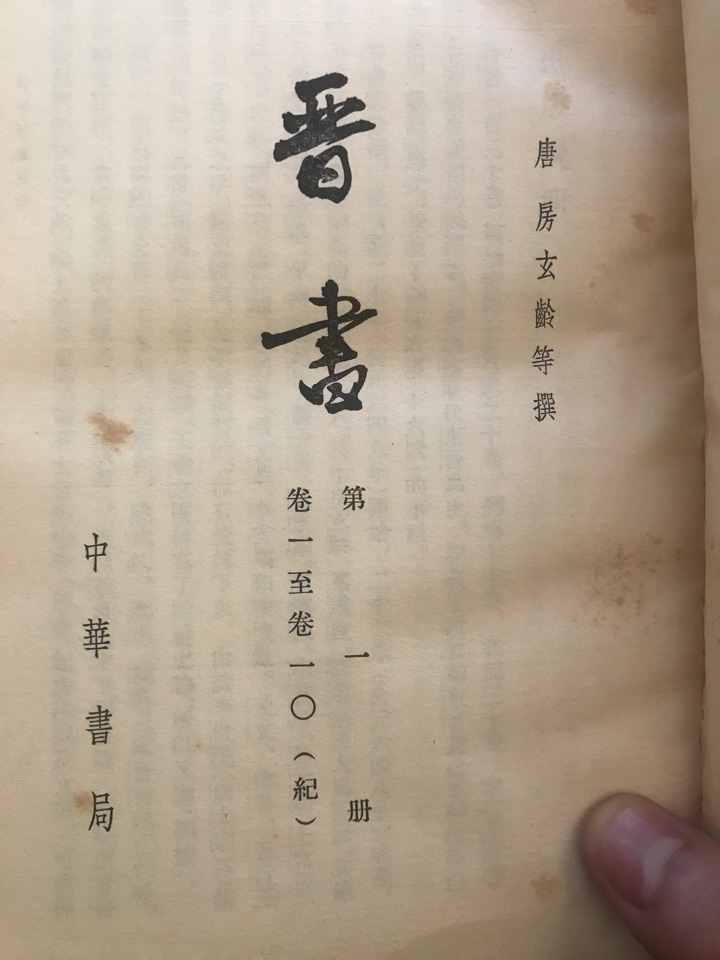 唐 房玄齡等撰
晉書
第一册
卷一至卷一〇（紀）
中華書局